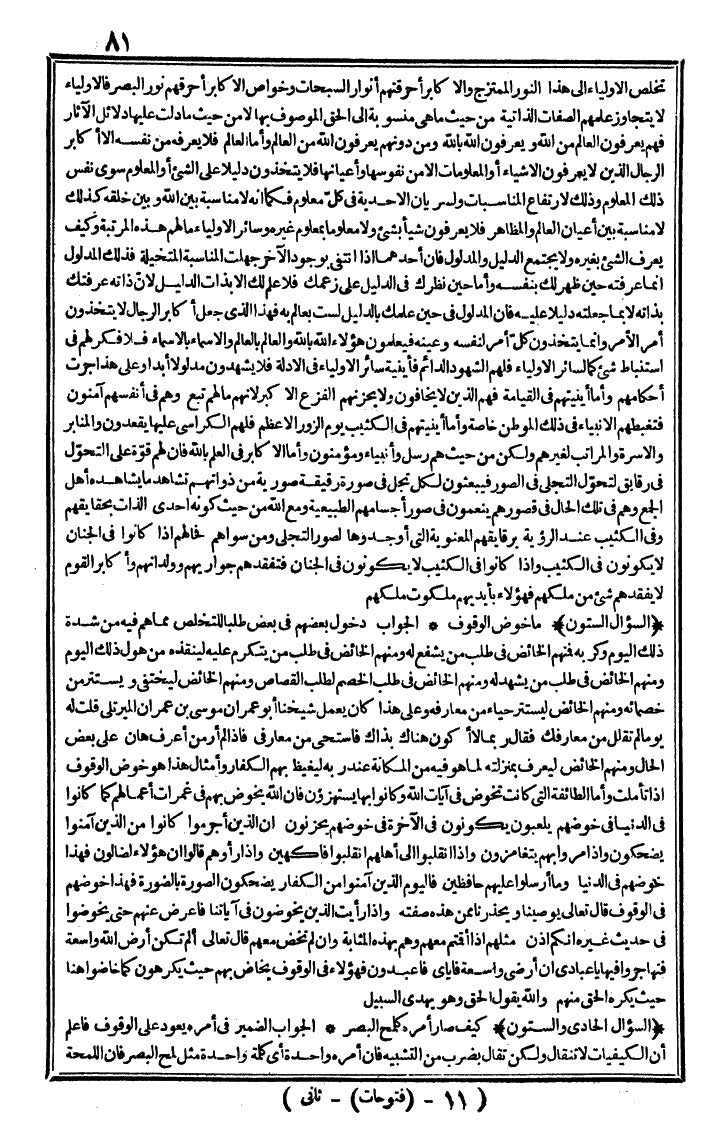 ٨١
تخلص الاولياء الى هذا النور الممتزج والا كابر أحرقتهم أنوار السبحات وخواص الا كابر أحرقهم نور البصر فالاولياء
لا يتجاوز علمهم الصفات الذاتية من حيث ماهى منسوبة الى الحق الموصوف بها لا من حيث مادلت عليها دلائل الآثار
فهم يعرفون العالم من الله ويعرفون الله بالله ومن دونهم يعرفون الله من العالم وأما العالم فلا يعرفه من نفسه الا أ كابر
الرجال الذين لا يعرفون الاشياء أو المعلومات الا من نفوسها وأعيانها فلا يتخذون دليلا على الشئ أو المعلوم سوى نفس
ذلك المعلوم وذلك لارتفاع المناسبات ولسريان الاحدية فى كلّ معلوم فكما انه لا مناسبة بين الله وبين خلقه كذلك
لا مناسبة بين أعيان العالم والمظاهر فلا يعرفون شيأ بشئ ولا معلوما بمعلوم غيره وسائر الاولياء مالهم هذه المرتبة وكيف
يعرف الشئ بغيره ولا يجتمع الدليل والمدلول فان أحدهما اذا انتفى بوجود الآخر جهلت المناسبة المتخيلة فذلك المدلول
انما عرفته حين ظهر لك بنفسه وأما حين نظرك فى الدليل على زعمك فلا علم لك الا بذات الدليل لانّ ذاته عرفتك
بذاته لا بما جعلته دليلا عليه فان المدلول فى حين علمك بالدليل لست بعالم به فهذا الذى جعل أ كابر الرجال لا يتخذون
أمر الأمر وانما يتخذون كلّ أمر لنفسه وعينه فيعلمون هؤلاء الله بالله والعالم بالعالم والاسماء بالاسماء فلا فكر لهم فى
استنباط شئ كما لسائر الاولياء فلهم الشهود الدائم فأينية سائر الاولياء فى الادلة فلا يشهدون مدلولا أبدا وعلى هذا جرت
أحكامهم وأما أينيتهم فى القيامة فهم الذين لا يخافون ولا يحزنهم الفزع الا كبر لانهم مالهم تبع وهم فى أنفسهم آمنون
فتغبطهم الانبياء فى ذلك الموطن خاصة وأما أينيتهم فى الكثيب يوم الزور الاعظم فلهم الكراسى عليها يقعدون والمنابر
والاسرة والمراتب لغيرهم ولكن من حيث هم رسل وأنبياء ومؤمنون وأما الا كابر فى العلم بالله فان لهم قوّة على التحوّل
فى رقايق لتحوّل التجلى فى الصور فيبعثون لكل تجل فى صورة رقيقة صورية من ذواتهم تشاهد ما يشاهده أهل
الجمع وهم فى تلك الحال فى قصورهم ينعمون فى صور أجسامهم الطبيعية ومع الله من حيث كونه احدى الذات بحقايقهم
وفى الكثيب عند الرؤية برقايقهم المعنوية التى أوجدوها لصور التجلى ومن سواهم فما لهم اذا كانوا فى الجنان
لا يكونون فى الكثيب واذا كانوا فى الكثيب لا يكونون فى الجنان فتفقدهم جواريهم وولدانهم وأ كابر القوم
لا يفقدهم شئ من ملكهم فهؤلاء بأيديهم ملكوت ملكهم
﴿السؤال الستون﴾ ماخوض الوقوف * الجواب دخول بعضهم فى بعض طلبا للتخلص مما هم فيه من شدة
ذلك اليوم وكربه فمنهم الخائض فى طلب من يشفع له ومنهم الخائض فى طلب من يتكرم عليه لينقذه من هول ذلك اليوم
ومنهم الخائض فى طلب من يشهد له ومنهم الخائض فى طلب الخصم لطلب القصاص ومنهم الخائض ليختفى ويستتر من
خصمائه ومنهم الخائض ليستتر حياء من معارفه وعلى هذا كان يعمل شيخنا أبو عمران موسى بن عمران الميرتلى قلت له
يوما لم تقلل من معارفك فقال ربما لا أ كون هناك بذاك فاستحى من معارفى فاذا لم أر من أعرف هان على بعض
الحال ومنهم الخائض ليعرف بمنزلته لما هو فيه من المكانة عند ربه ليغيظ بهم الكفار وأمثال هذا هو خوض الوقوف
اذا تأملت وأما الطائفة التى كانت تخوض فى آيات الله وكانوا بها يستهزؤن فان الله يخوض بهم فى غمرات أعمالهم كما كانوا
فى الدنيا فى خوضهم يلعبون يكونون فى الآخرة فى خوضهم يحزنون ان الذين أجرموا كانوا من الذين آمنوا
يضحكون واذا مروا بهم يتغامزون واذا انقلبوا الى أهلهم انقلبوا فاكهين واذا رأوهم قالوا ان هؤلاء لضالون فهذا
خوضهم فى الدنيا وما أرسلوا عليهم حافظين فاليوم الذين آمنوا من الكفار يضحكون الصورة بالصورة فهذا خوضهم
فى الوقوف قال تعالى يوصينا ويحذرنا ممن هذه صفته واذا رأيت الذين يخوضون فى آياتنا فاعرض عنهم حتى يخوضوا
فى حديث غيره انكم اذن مثلهم اذا أقتم معهم وهم بهذه المثابة وان لم تخض معهم قال تعالى ألم تكن أرض الله واسعة
فتهاجروا فيها ياعبادى ان أرضى واسعة فاياى فاعبدون فهؤلاء فى الوقوف يخاض بهم حيث يكرهون كما خاضوا هنا
حيث يكره الحق منهم والله يقول الحق وهو يهدى السبيل
﴿السؤال الحادى والستون﴾ كيف صار أمره كلمح البصر * الجواب الضمير فى أمره يعود على الوقوف فاعلم
أن الكيفيات لا تنقال ولكن تقال بضرب من التشبيه فان أمره واحدة أى كلمة واحدة مثل لمح البصر فان اللمحة
( ١١ - (فتوحات) - ثانى )